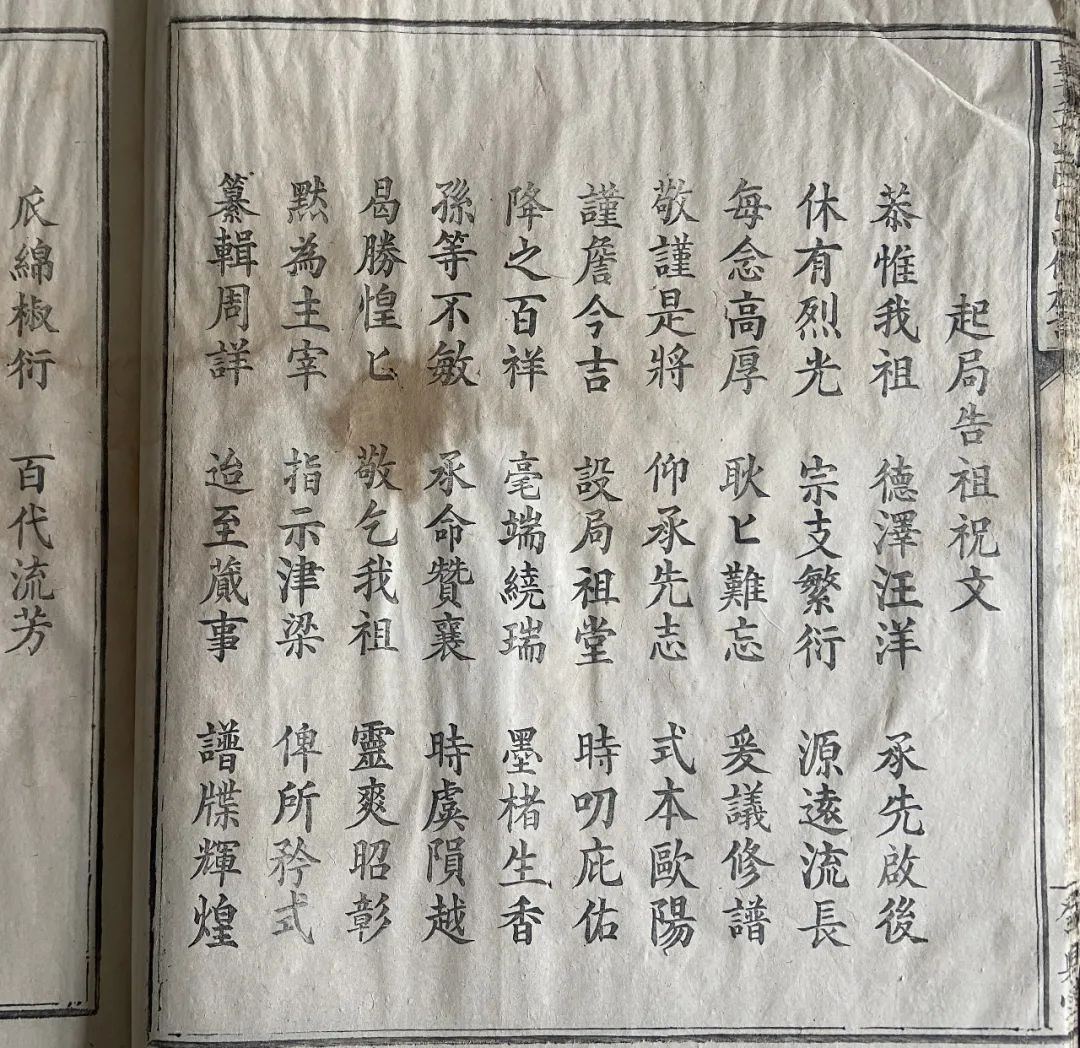 起局告祖祝文
恭惟我祖 德澤汪洋 承先啟後
休有烈光 宗支繁衍 源遠流長
每念高厚 耿匕難忘 爰議修譜
敬謹是將 仰承先志 式本歐陽
謹詹今吉 設局祖堂 時叨庇佑
降之百祥 毫端繞瑞 墨楮生香
孫等不敏 承命贊襄 時虞隕越
曷勝惶匕 敬乞我祖 靈爽昭彰
黙為主宰 指示津梁 俾所矜式
纂輯周詳 迨至蕆事 譜牒輝煌
瓜綿椒衍 百代流芳